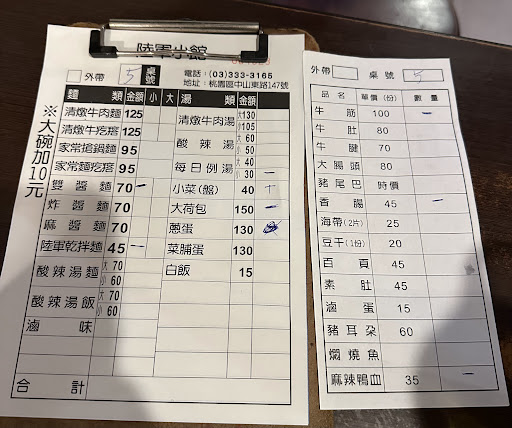 陸軍小館
外帶 5 桌號
電話：(03)333-3165
地址：桃園區中山東路147號
麵 類 金額 小 大 湯 類 金額
清燉牛肉麵 125
清燉牛疙瘩 125
家常搶鍋麵 95
家常麵疙瘩 95
雙醬麵 70 一
炸醬麵 70
麻醬麵 70
陸軍乾拌麵 45 一
酸辣湯麵 大 70 小 60
酸辣湯飯 大 70 小 60
滷味
合計
※大碗加10元
清燉牛肉湯 大130 小105
酸辣湯 大 60 小 50
每日例湯 大 40 小 30 一
小菜(盤) 40 一
大荷包 150 一
蔥蛋 130
菜脯蛋 130
白飯 15
外帶 桌號 5
品名 單價(份) 數量
牛筋 100 一
牛肚 80
牛腱 70
大腸頭 80
豬尾巴 時價
香腸 45 一
海帶(2片) 25
豆干(1份) 20
百頁 45
素肚 45
滷蛋 15
豬耳朶 60
燜燒魚
麻辣鴨血 35 一